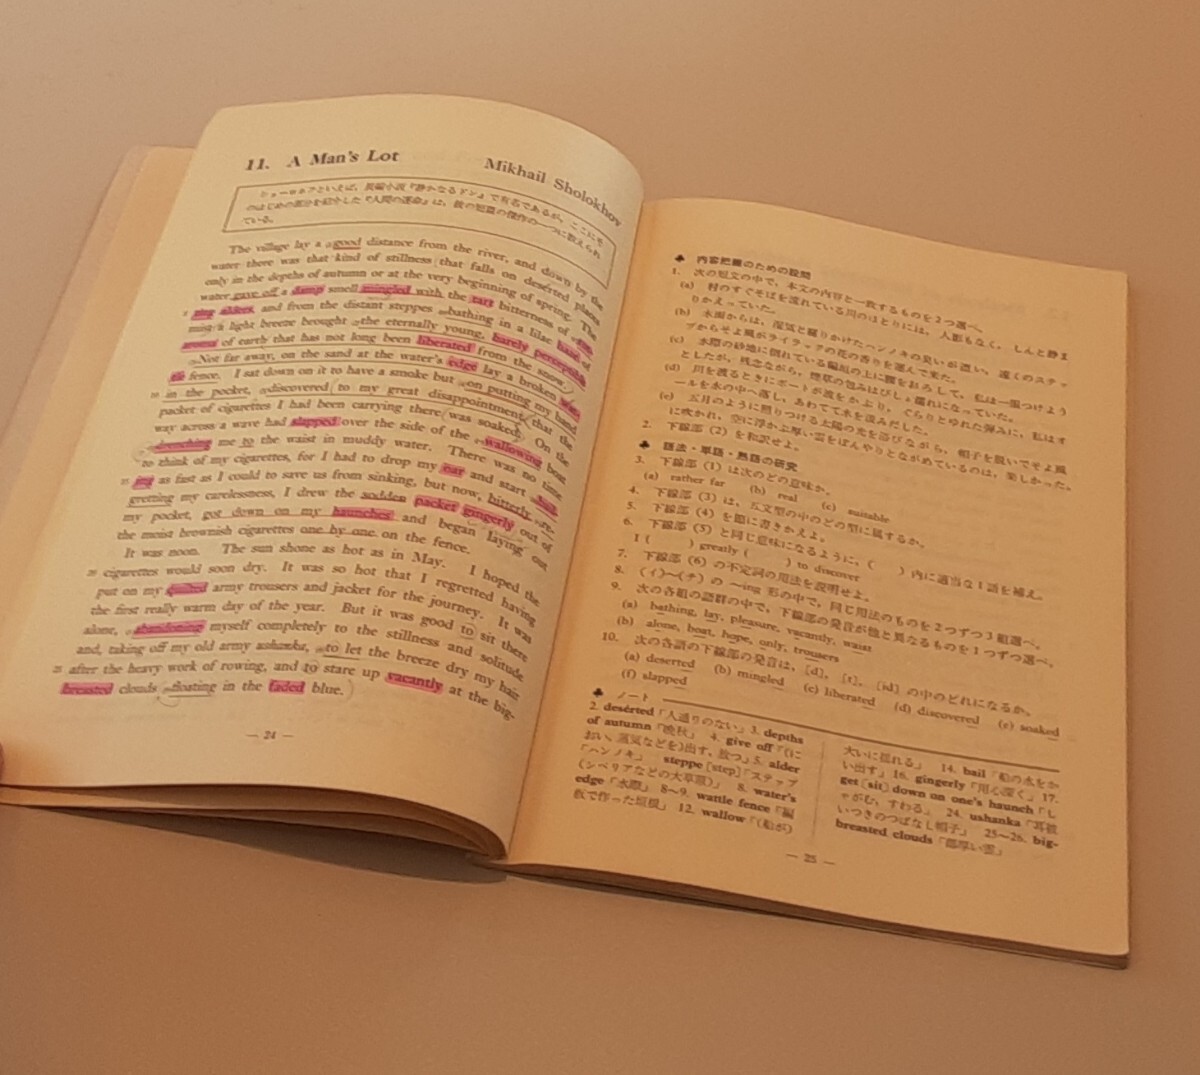 11. A Man's Lot Mikhail Sholokhov
ショーロホフといえば，長編小説『静かなるドン』で有名であるが，ここにそ
のはじめの部分を紹介した『人間の運命』は，彼の短篇の傑作の一つに数えられ
ている。
The village lay a good distance from the river, and down by the
water there was that kind of stillness that falls on desérted places
only in the depths of autumn or at the very beginning of spring. The
water gave off a damp smell mingled with the tart bitterness of
alders, and from the distant steppes bathing in a lilac haze of
mist a light breeze brought the eternally young, barely perceptible
aroma of earth that has not long been liberated from the snow.
Not far away, on the sand at the water's edge lay a broken wat-
tle fence. I sat down on it to have a smoke but on putting my hand
10 in the pocket, discovered to my great disappointment that the
packet of cigarettes I had been carrying there was soaked. On the
way across a wave had slapped over the side of the wallowing boat
drenching me to the waist in muddy water. There was no time
to think of my cigarettes, for I had to drop my oar and start bail-
15 ing as fast as I could to save us from sinking, but now, bitterly re-
gretting my carelessness, I drew the sodden packet gingerly out of
my pocket, got down on my haunches and began laying out
the moist brownish cigarettes one by one on the fence.
It was noon. The sun shone as hot as in May. I hoped the
20 cigarettes would soon dry. It was so hot that I regretted having
put on my quilted army trousers and jacket for the journey. It was
the first really warm day of the year. But it was good to sit there
alone, abandoning myself completely to the stillness and solitude
and, taking off my old army ushanka, to let the breeze dry my hair
25 after the heavy work of rowing, and to stare up vacantly at the big-
breasted clouds floating in the faded blue.
— 24 —
♣ 内容把握のための設問
1. 次の短文の中で，本文の内容と一致するものを2つ選べ。
(a) 村のすぐそばを流れている川のほとりには，人影もなく，しんと静ま
りかえっていた。
(b) 水面からは，湿気と腐りかけたハンノキの臭いが漂い，遠くのステッ
プからそよ風がライラックの花の香りを運んで来た。
(c) 水際の砂地に倒れている編垣の上に腰をおろして，私は一服つけよう
としたが，残念ながら，煙草の包みはびしょ濡れになっていた。
(d) 川を渡るときにボートが波をかぶり，ぐらりとゆれた弾みに，私はオ
ールを水の中へ落し，あわてて水を汲みだした。
(e) 五月のように照りつける太陽の光を浴びながら，帽子を脱いでそよ風
に吹かれ，空に浮かぶ厚い雲をぼんやりとながめているのは，楽しかった。
2. 下線部 (2) を和訳せよ。
♣ 語法・単語・熟語の研究
3. 下線部 (1) は次のどの意味か。
(a) rather far (b) real (c) suitable
4. 下線部 (3) は，五文型の中のどの型に属するか。
5. 下線部 (4) を節に書きかえよ。
6. 下線部 (5) と同じ意味になるように，( ) 内に適当な1語を補え。
I ( ) greatly ( ) to discover
7. 下線部 (6) の不定詞の用法を説明せよ。
8. (イ)〜(チ) の 〜ing 形の中で，同じ用法のものを2つずつ3組選べ。
9. 次の各組の語群の中で，下線部の発音が他と異なるものを1つずつ選べ。
(a) bathing, lay, pleasure, vacantly, waist
(b) alone, boat, hope, only, trousers
10. 次の各語の下線部の発音は，[d], [t], [id] の中のどれになるか。
(a) deserted (b) mingled (c) liberated (d) discovered (e) soaked
(f) slapped
♣ ノート
2. desérted「人通りのない」3. depths
of autumn「晩秋」 4. give off「(に
おい，蒸気などを)出す，放つ」5. alder
「ハンノキ」 steppe [step]「ステップ
(シベリアなどの大草原)」 8. water's
edge「水際」 8〜9. wattle fence「編
枝で作った垣根」 12. wallow「(船が)
大いに揺れる」 14. bail「船の水をか
い出す」16. gingerly「用心深く」17.
get [sit] down on one's haunch「し
ゃがむ，すわる」 24. ushanka「耳被
いつきのつばなし帽子」 25〜26. big-
breasted clouds「部厚い雲」
— 25 —